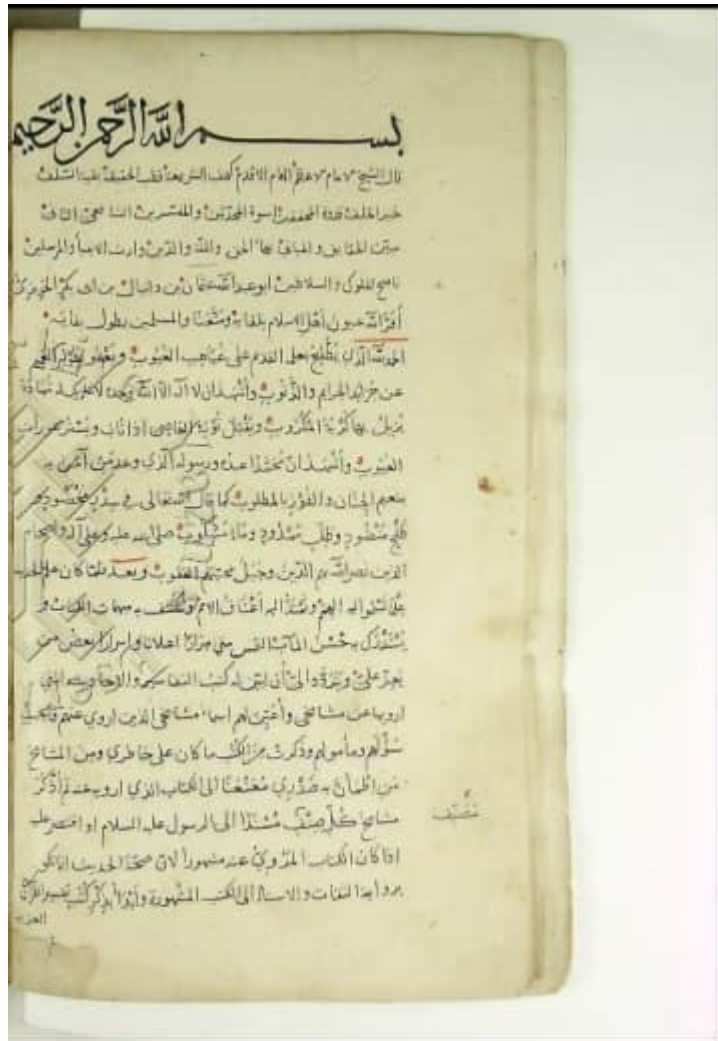 بسم الله الرحمن الرحيم
قال الشيخ الامام الاعظم الاقدم كهف الشريعة الحقيقة بقية السلف
خير الخلف قدوة المحققين اسوة المحدثين والمفسرين
الحقايق الحق والملة والدين وارث الانبيا والمرسلين
ناصح الملوك والسلاطين ابو عبد الله عثمان بن دانيال بن ابى بكر
أقر الله عيون أهل الاسلام بلقائه ومتعنا والمسلمين بطول بقائه
الحمد لله الذي على غياهب الغيوب
عن جرايد الجرايم والذنوب وأشهد ان لا اله الا الله وحده لا شريك له شهادة
يزيل بها كربة المكروب ويقبل توبة العاصى اذا تاب ويستر عورات
العيوب وأشهد ان محمدا عبده ورسوله الذي وعد من آمن به
بنعيم الجنان والفوز بالمطلوب كما قال الله تعالى في سدر مخضود
طلح منضود وظل ممدود وماء مسكوب صلى الله عليه وعلى آله واصحابه
الذين نصر الله بهم الدين وجبل بمحبتهم القلوب وبعد فلما كان علم الحديث
اليه الهمم اليه أعناق الامم به مهمات الكتاب و
بحسن المآب التمس مني مرارا اعلانا واسرارا بعض من
يعز علي وتردد الي أن ابين له كتب التفاسير والاحاديث التي
ارويها عن مشايخي وأعين لهم اسماء مشايخي الذين اروي عنهم
سؤلهم ومأمولهم وذكرت من الكتب ما كان على خاطري ومن المشايخ
من اطمأن به صدري معنعنا الى الكتاب الذي ارويه عنه لم أذكر
مشايخ كل صنف مسندا الى الرسول عليه السلام او اقتصر عليه
اذا كان الكتاب المروي عنه مشهورا لان صحة الحديث انما تكون
برواية الثقات والاسناد الى الكتب المشهورة وأبدأ بذكر كتب تفسير القرآن
العزيز
مصنف